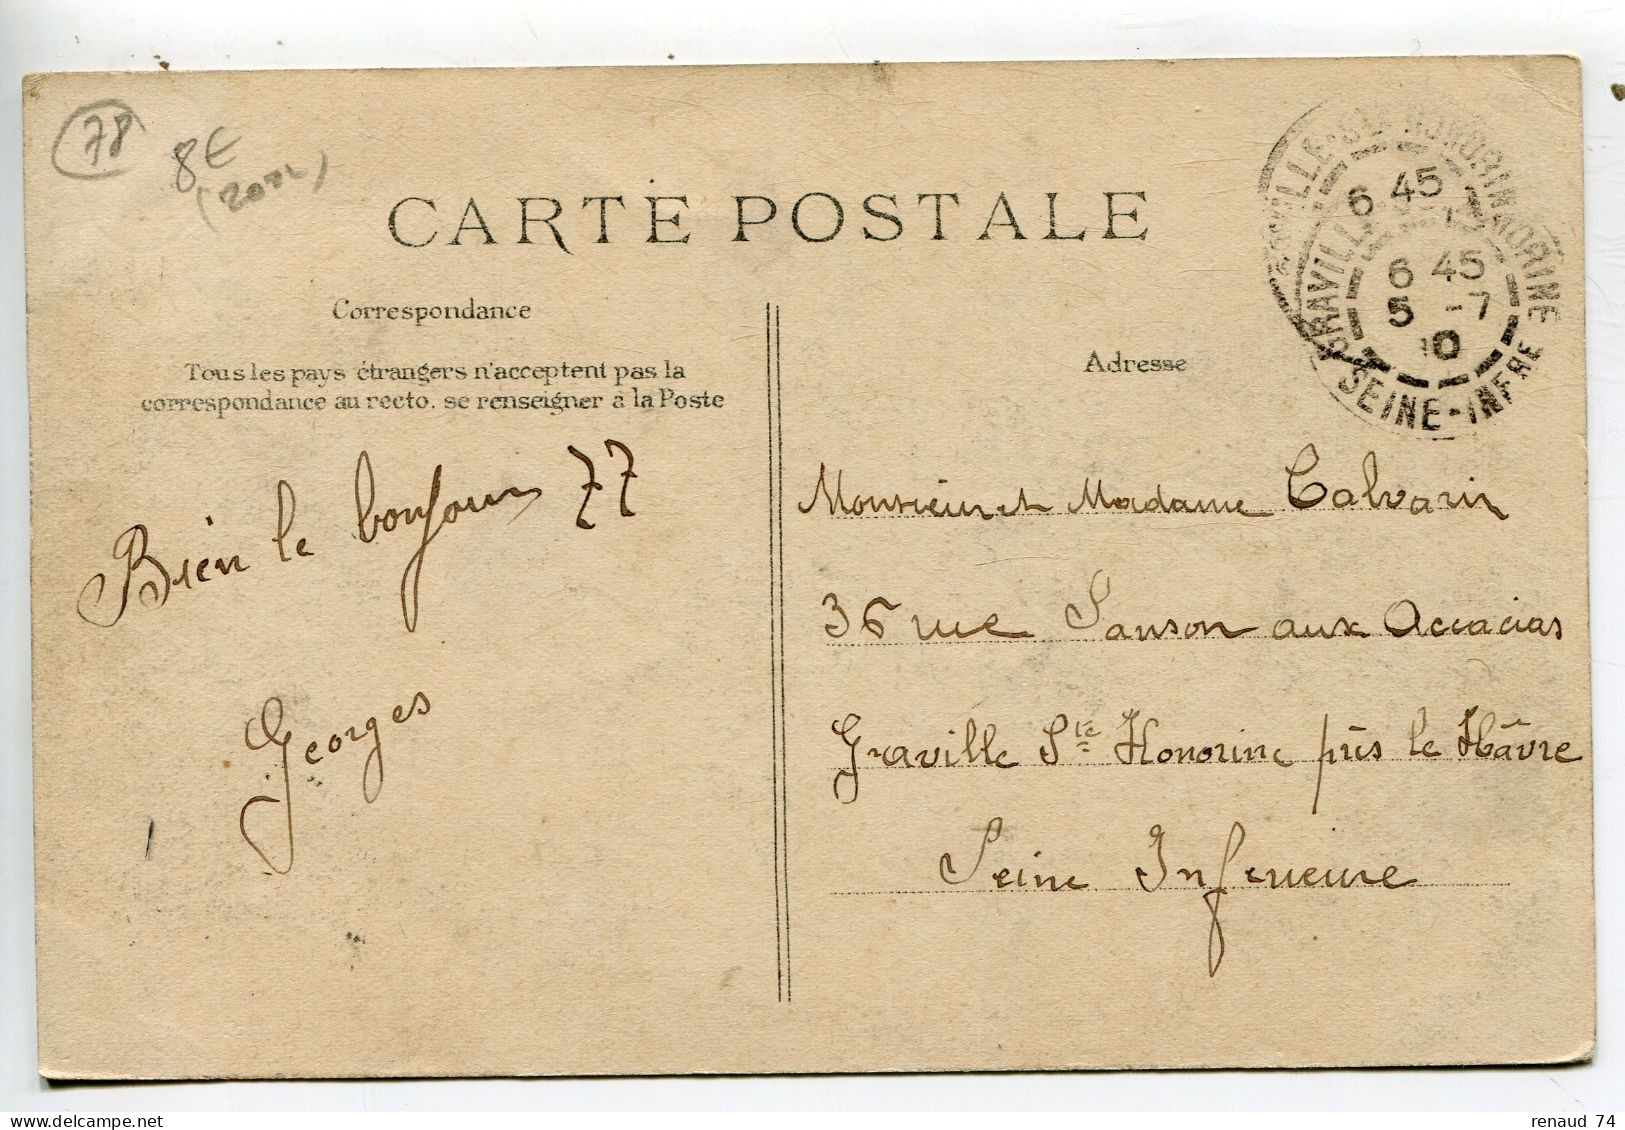 78
8€
CARTE POSTALE
GRAVILLE-STE HONORINE
6 45
6 45
5 -7
10
SEINE-INFRE
Correspondance
Tous les pays étrangers n'acceptent pas la
correspondance au recto, se renseigner à la Poste
Adresse
Bien le bonjour 77
Georges
Monsieur et Madame Calvarin
36 rue Sanson aux Accacias
Graville Ste Honorine près le Hâvre
Seine Inferieure
renaud 74